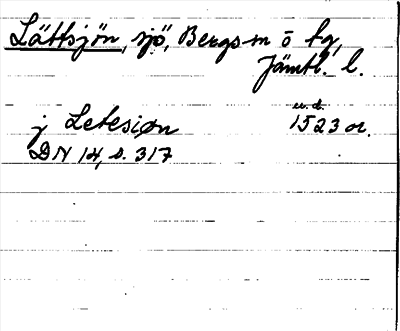 Lättsjön, sjö, Bergs sn o tg,
Jämtl. l.
u.d.
j Letesiøn 1523 or.
DN 14, s. 317